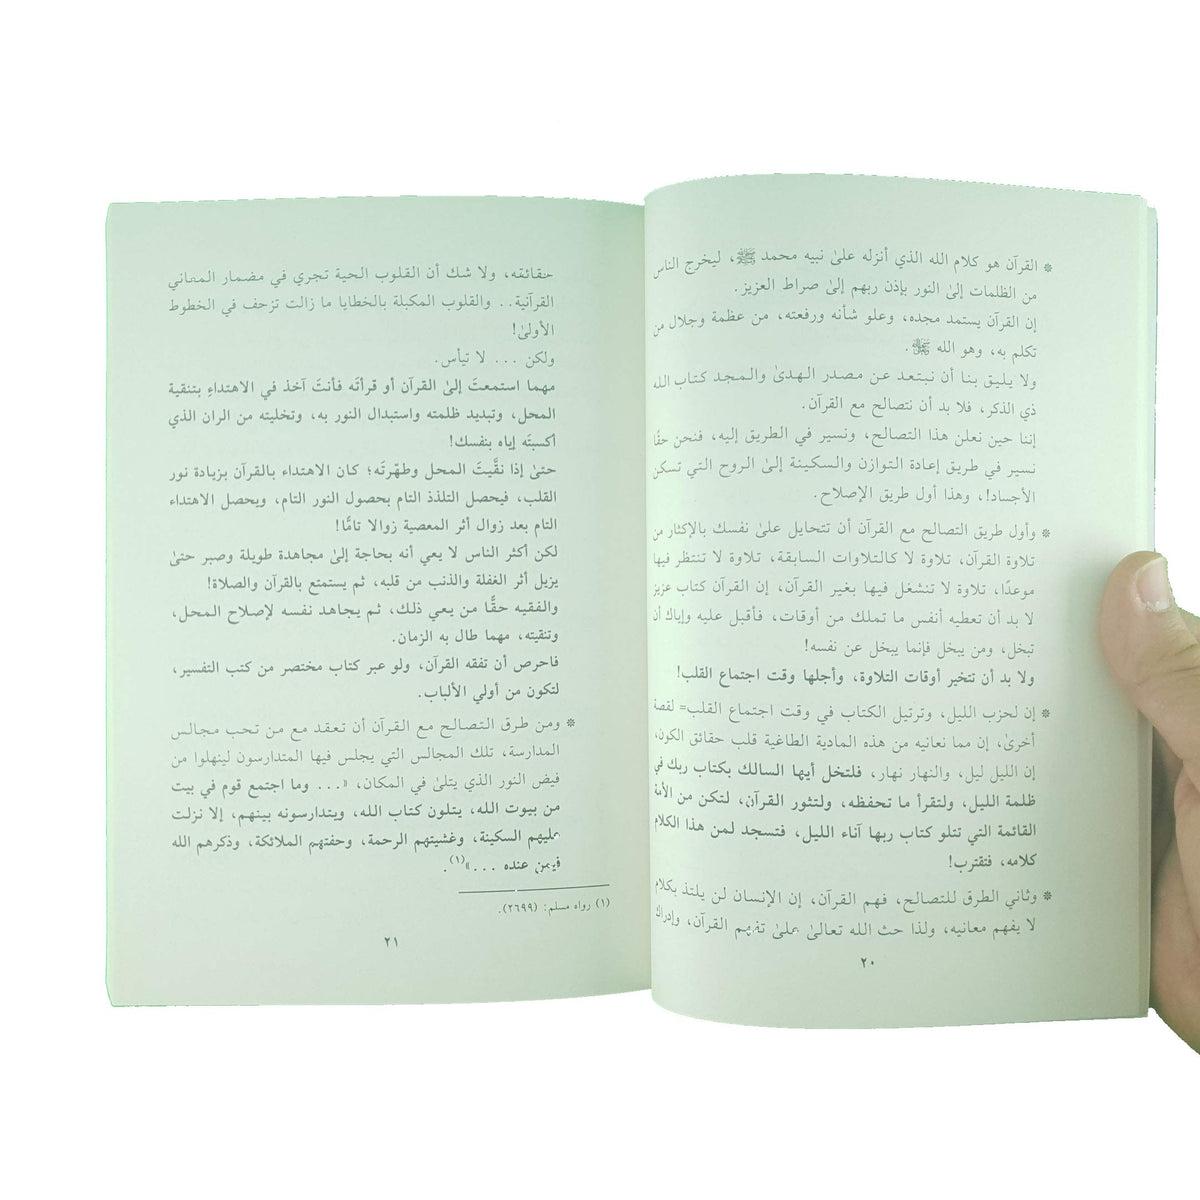 * القرآن هو كلام الله الذي أنزله علىٰ نبيه محمد ﷺ، ليخرج الناس
من الظلمات إلىٰ النور بإذن ربهم إلىٰ صراط العزيز.
إن القرآن يستمد مجده، وعلو شأنه ورفعته، من عظمة وجلال من
تكلم به، وهو الله ﷻ.
ولا يليق بنا أن نبتعد عن مصدر الهدىٰ والمجد كتاب الله
ذي الذكر، فلا بد أن نتصالح مع القرآن.
إننا حين نعلن هذا التصالح، ونسير في الطريق إليه، فنحن حقًّا
نسير في طريق إعادة التوازن والسكينة إلىٰ الروح التي تسكن
الأجساد!، وهذا أول طريق الإصلاح.
* وأول طريق التصالح مع القرآن أن تتحايل علىٰ نفسك بالإكثار من
تلاوة القرآن، تلاوة لا كالتلاوات السابقة، تلاوة لا تنتظر فيها
موعدًا، تلاوة لا تنشغل فيها بغير القرآن، إن القرآن كتاب عزيز
لا بد أن تعطيه أنفس ما تملك من أوقات، فأقبل عليه وإياك أن
تبخل، ومن يبخل فإنما يبخل عن نفسه!
ولا بد أن تتخير أوقات التلاوة، وأجلها وقت اجتماع القلب!
* إن لحزب الليل، وترتيل الكتاب في وقت اجتماع القلب= لفصة
أخرىٰ، إن مما نعانيه من هذه المادية الطاغية قلب حقائق الكون،
إن الليل ليل، والنهار نهار، فلتخل أيها السالك بكتاب ربك في
ظلمة الليل، ولتقرأ ما تحفظه، ولتثور القرآن، لتكن من الأمة
القائمة التي تتلو كتاب ربها آناء الليل، فتسجد لمن هذا الكلام
كلامه، فتقترب!
* وثاني الطرق للتصالح، فهم القرآن، إن الإنسان لن يلتذ بكلام
لا يفهم معانيه، ولذا حث الله تعالىٰ علىٰ تفهم القرآن، وإدراك
٢٠
حقائقه، ولا شك أن القلوب الحية تجري في مضمار المعاني
القرآنية.. والقلوب المكبلة بالخطايا ما زالت تزحف في الخطوط
الأولىٰ!
ولكن ... لا تيأس.
مهما استمعتَ إلىٰ القرآن أو قرأتَه فأنتَ آخذ في الاهتداءِ بتنقية
المحل، وتبديد ظلمته واستبدال النور به، وتخليته من الران الذي
أكسبتَه إياه بنفسك!
حتىٰ إذا نقَّيتَ المحل وطهّرتَه؛ كان الاهتداء بالقرآن بزيادة نور
القلب، فيحصل التلذذ التام بحصول النور التام، ويحصل الاهتداء
التام بعد زوال أثر المعصية زوالا تامًّا!
لكن أكثر الناس لا يعي أنه بحاجة إلىٰ مجاهدة طويلة وصبر حتىٰ
يزيل أثر الغفلة والذنب من قلبه، ثم يستمتع بالقرآن والصلاة!
والفقيه حقًّا من يعي ذلك، ثم يجاهد نفسه لإصلاح المحل،
وتنقيته، مهما طال به الزمان.
فاحرص أن تفقه القرآن، ولو عبر كتاب مختصر من كتب التفسير،
لتكون من أولي الألباب.
* ومن طرق التصالح مع القرآن أن تعقد مع من تحب مجالس
المدارسة، تلك المجالس التي يجلس فيها المتدارسون لينهلوا من
فيض النور الذي يتلىٰ في المكان، «... وما اجتمع قوم في بيت
من بيوت الله، يتلون كتاب الله، ويتدارسونه بينهم، إلا نزلت
عليهم السكينة، وغشيتهم الرحمة، وحفتهم الملائكة، وذكرهم الله
فيمن عنده ...»(١).
(١) رواه مسلم: (٢٦٩٩).
٢١